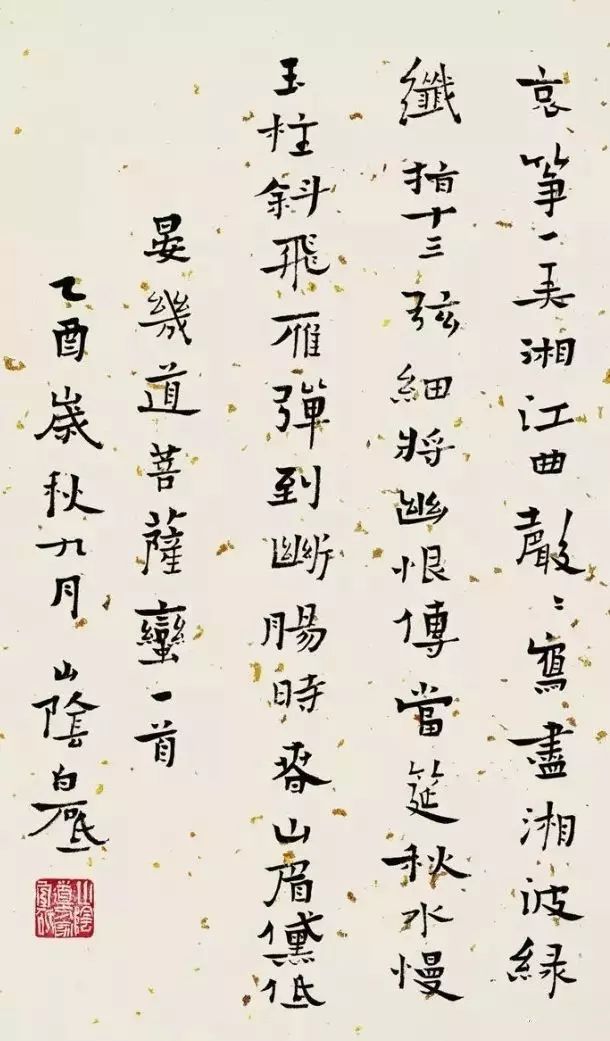 哀箏一弄湘江曲聲〻寫盡湘波緑
纖指十三弦細將幽恨傳當筵秋水慢
玉柱斜飛雁彈到斷腸時春山眉黛低
晏幾道菩薩蠻一首
乙酉歲秋九月山陰白砥